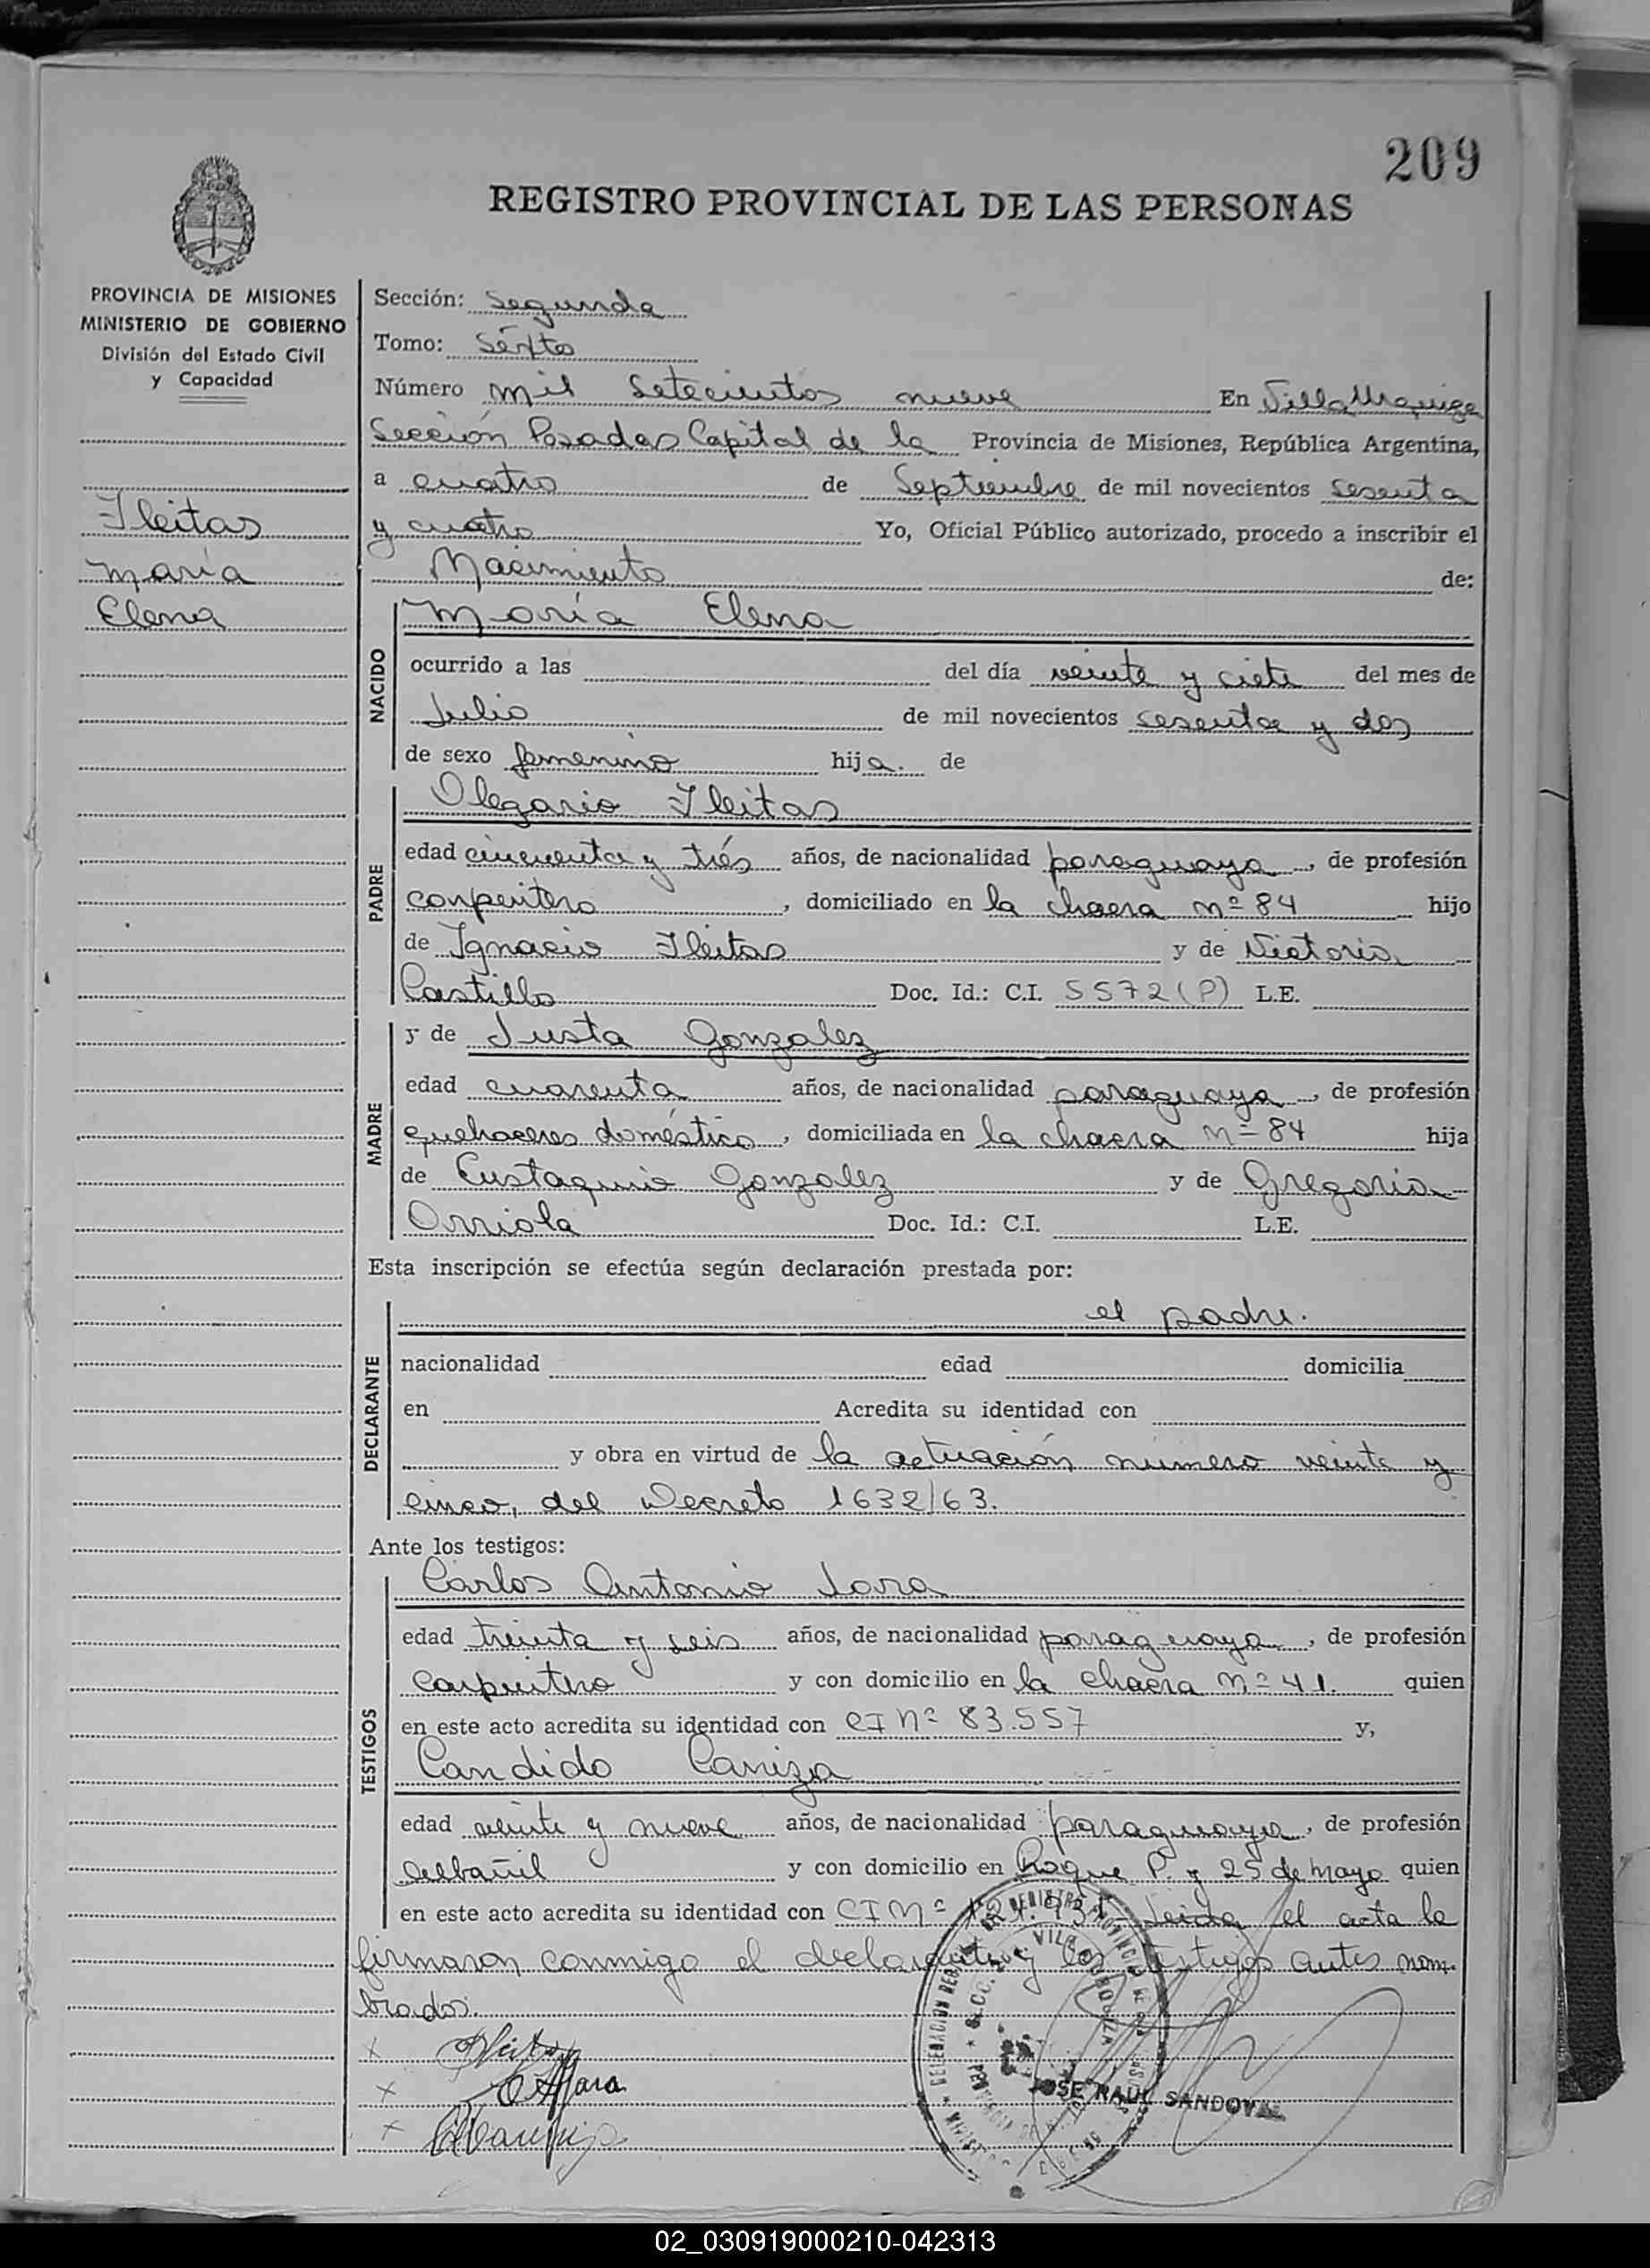 209
REGISTRO PROVINCIAL DE LAS PERSONAS
PROVINCIA DE MISIONES
MINISTERIO DE GOBIERNO
División del Estado Civil
y Capacidad
Fleitas
María
Elena
Sección: Segunda
Tomo: Séxto
Número mil setecientos nueve En Villa Urquiza
Sección Posadas Capital de la Provincia de Misiones, República Argentina,
a cuatro de Septiembre de mil novecientos sesenta
y cuatro Yo, Oficial Público autorizado, procedo a inscribir el
Nacimiento de:
NACIDO
María Elena
ocurrido a las del día veinte y ciete del mes de
Julio de mil novecientos sesenta y dos
de sexo femenino hija. de
PADRE
Olegario Fleitas
edad cincuenta y trés años, de nacionalidad paraguaya, de profesión
carpintero, domiciliado en la chacra nº 84 hijo
de Ignacio Fleitas y de Victoria
Castillo Doc. Id.: C.I. 5572 (P) L.E.
MADRE
y de Justa Gonzalez
edad cuarenta años, de nacionalidad paraguaya, de profesión
quehaceres doméstico, domiciliada en la chacra nº 84 hija
de Eustaquio Gonzalez y de Gregoria
Orriola Doc. Id.: C.I. L.E.
Esta inscripción se efectúa según declaración prestada por:
DECLARANTE
el padre.
nacionalidad edad domicilia
en Acredita su identidad con
y obra en virtud de la actuación número veinte y
cinco, del Decreto 1632/63.
Ante los testigos:
TESTIGOS
Carlos Antonio Jara
edad treinta y seis años, de nacionalidad paraguaya, de profesión
carpintero y con domicilio en la chacra nº 41. quien
en este acto acredita su identidad con CI nº 83.557 y,
Candido Caniza
edad veinte y nueve años, de nacionalidad paraguaya, de profesión
albañil y con domicilio en Roque P. y 25 de mayo quien
en este acto acredita su identidad con CI Nº Leida el acta la
firmaron conmigo el declarante y los testigos antes nom-
brados.
JOSE RAUL SANDOVAL
02_030919000210-042313